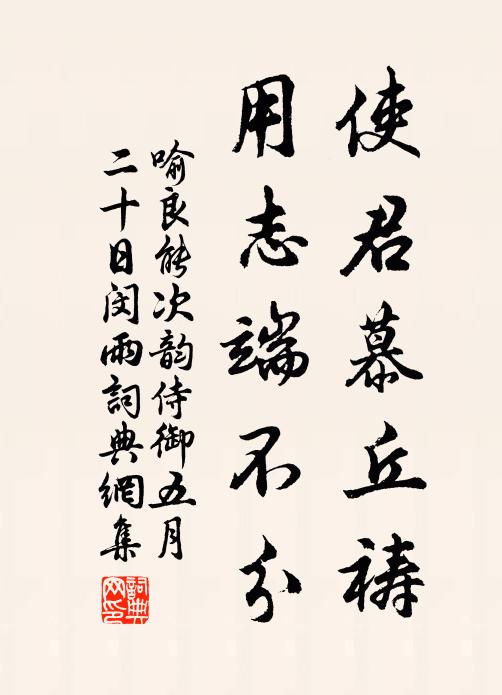 使君慕丘禱
用志端不分
喻良能次韵侍御五月
二十日闵雨詞典網集
詞典
网印